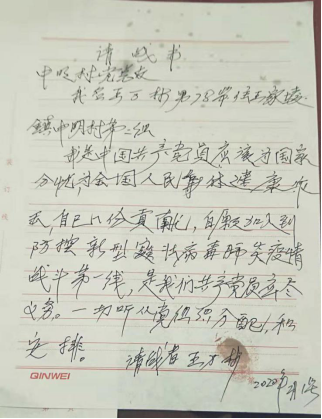 请战书
中明村党支
我是王才彬男78岁住王家坡
鎮中明村第一组
我是中国共产党员应该为国家
分忧,为全国人民身体健康
自己一份贡献,自愿加入到
防控新型冠状病毒肺炎疫情
战斗第一线,是我们共产党员应尽
义务。一切听从党组织分配,和
安排。
请战者 王才彬
2020年2月1号
QINWEI